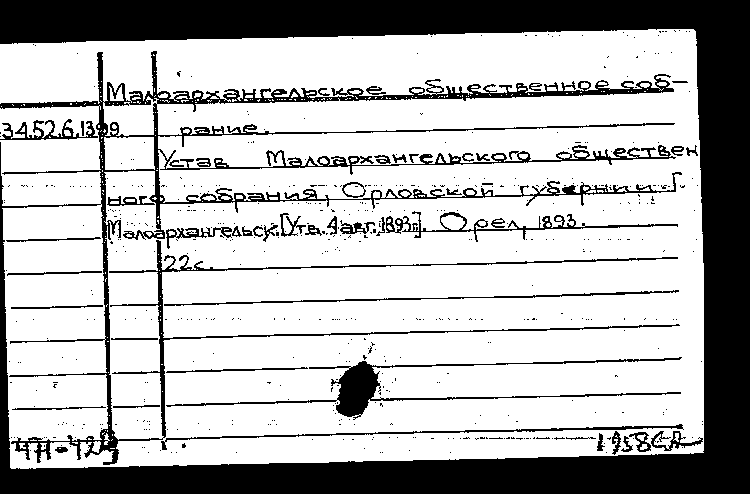 Малоархангельское общественное соб-
34.52.6.1399. рание.
Устав Малоархангельского обществен
ного собрания, Орловской губернии г.
Малоархангельск. [Утв. 4 авг. 1893г.]. Орел, 1893.
22с.